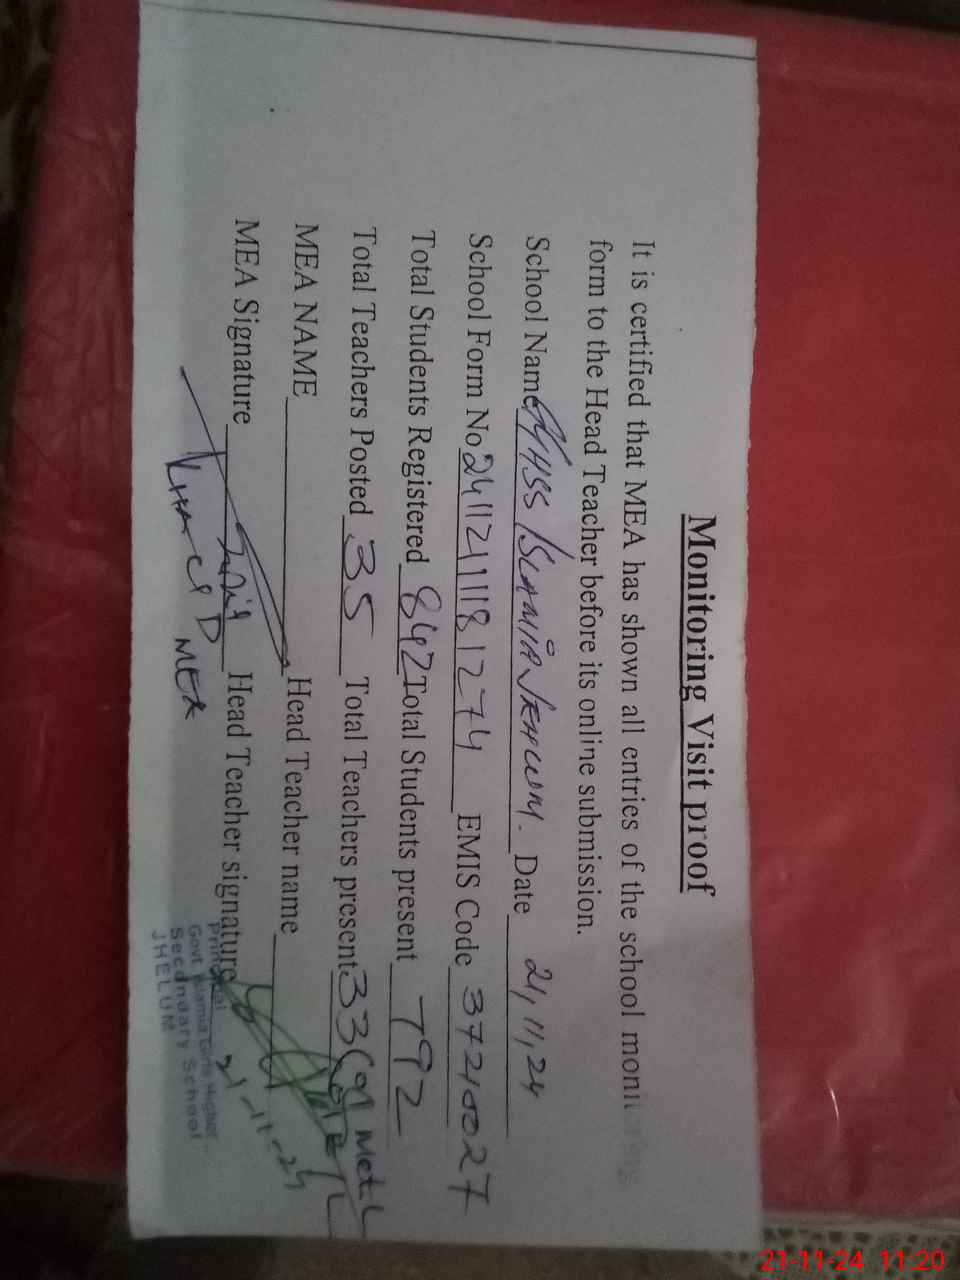 Monitoring Visit proof
It is certified that MEA has shown all entries of the school monitoring
form to the Head Teacher before its online submission.
School Name GHSS ISLAMIA JEHLUM. Date 21,11,24
School Form No 2411211181274 EMIS Code 37210027
Total Students Registered 842 Total Students present 792
Total Teachers Posted 35 Total Teachers present 33
MEA NAME Head Teacher name
MEA Signature Head Teacher signature
MEA
21-11-24
Principal
Govt Islamia Girls Higher
Secondary School
JHELUM
21-11-24 11:20